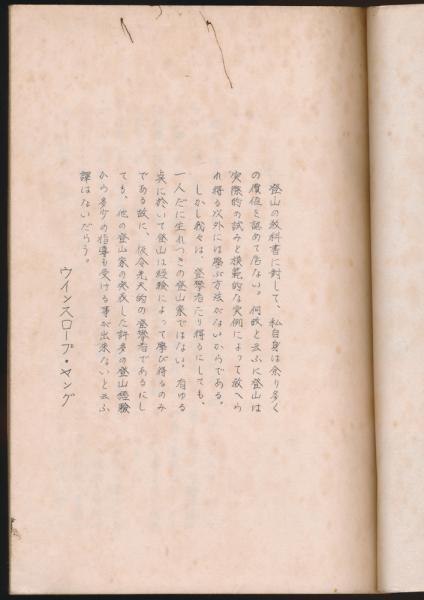 登山の教科書に対して、私自身は余り多く
の價値を認めて居ない。何故と云ふに登山は
実際的の試みと模範的な実例によって教へら
れ得る以外には學ぶ方法がないからである。
しかし我々は、登攀者たり得るにしても、
一人だに生れつきの登山家ではない。有ゆる
点に於いて登山は経験によって學び得るのみ
である故に、仮令先天的の登攀者であるにし
ても、他の登山家の発表した許多の登山経験
から多少の指導も受ける事が出来ないと云ふ
譯はないだらう。
ウインスロープ・ヤング